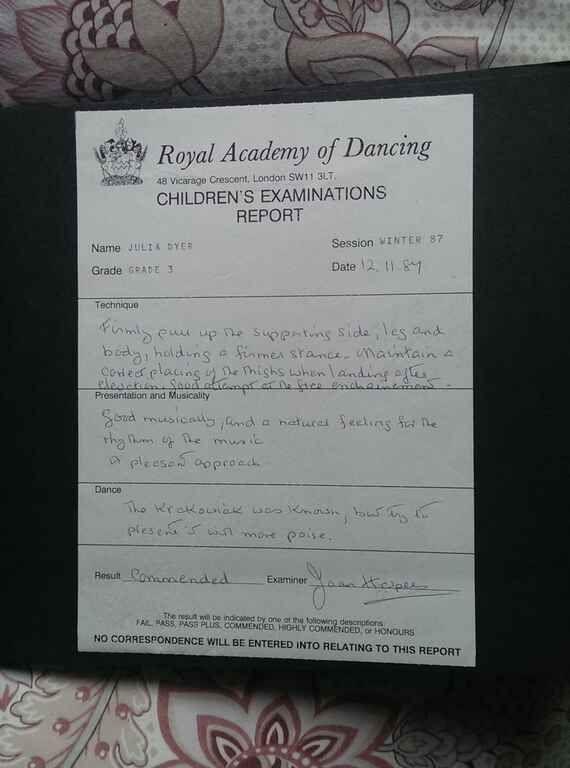 Royal Academy of Dancing
48 Vicarage Crescent, London SW11 3LT.
CHILDREN'S EXAMINATIONS
REPORT
Name JULIA DYER
Session WINTER 87
Grade GRADE 3
Date 12.11.87
Technique
Firmly pull up the supporting side, leg and
body, holding a firmer stance. Maintain a
correct placing of the thighs when landing after
elevation. Good attempt at the free enchainement.
Presentation and Musicality
Good musically, and a natural feeling for the
rhythm of the music
A pleasant approach.
Dance
The Krakowiak was known, now try to
present it with more poise.
Result Commended
Examiner Joan
The result will be indicated by one of the following descriptions:
FAIL, PASS, PASS PLUS, COMMENDED, HIGHLY COMMENDED, or HONOURS
NO CORRESPONDENCE WILL BE ENTERED INTO RELATING TO THIS REPORT